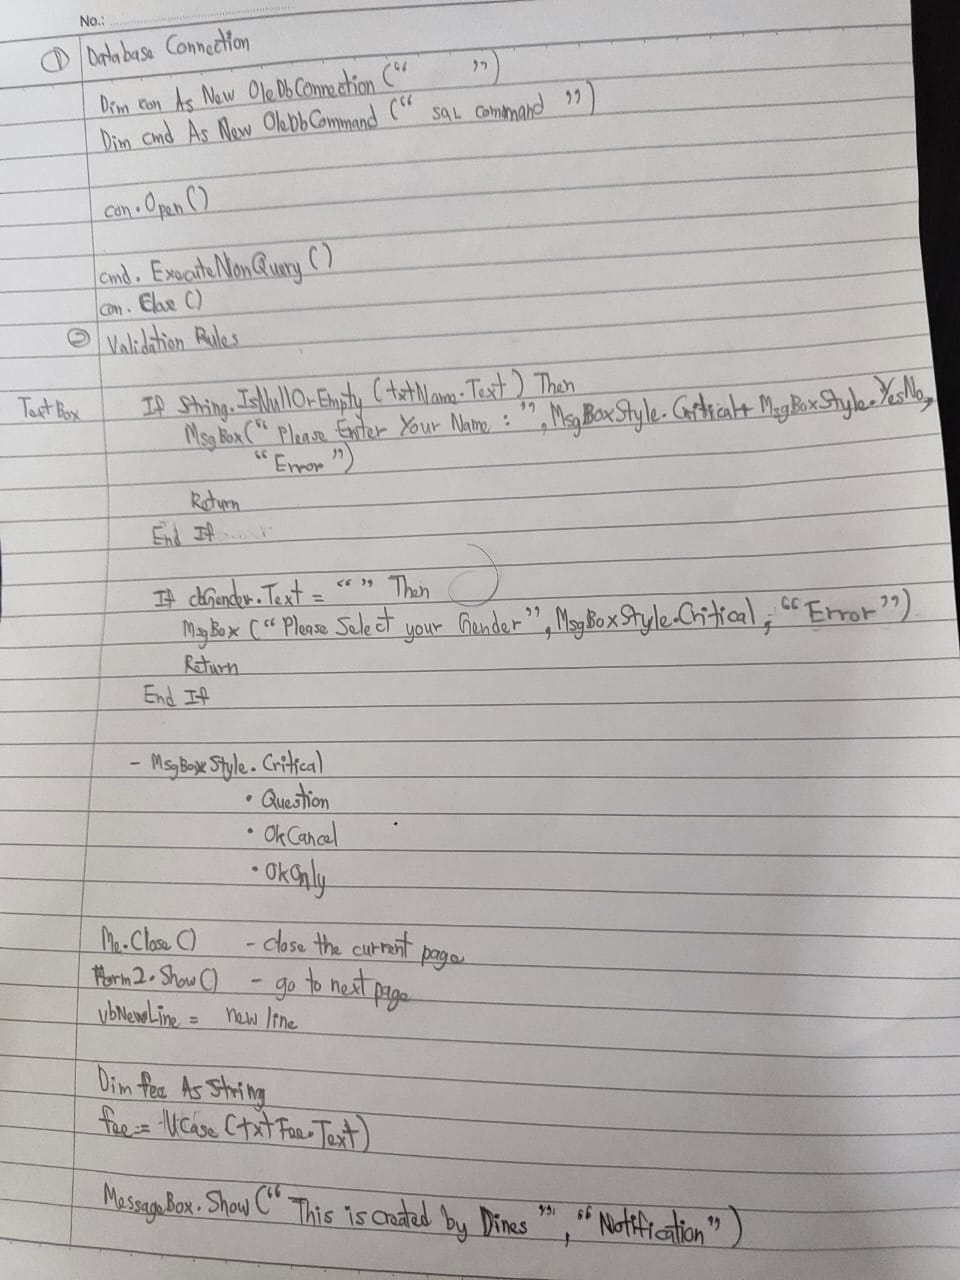 No.:
① Database Connection
Dim con As New OleDbConnection (“ ”)
Dim cmd As New OleDbCommand (“ SQL command ”)
con.Open()
cmd. ExecuteNonQuery ()
con. Close ()
② Validation Rules
Text Box If String.IsNullOrEmpty (txtName.Text) Then
MsgBox(“ Please Enter Your Name : ”, MsgBoxStyle.Critical + MsgBoxStyle.YesNo,
“ Error ”)
Return
End If
If cbGender.Text = “ ” Then
MsgBox (“ Please Select your Gender ”, MsgBoxStyle.Critical, “ Error ”)
Return
End If
- MsgBoxStyle.Critical
• Question
• OkCancel
• OkOnly
Me.Close() - close the current page
Form2.Show() - go to next page
vbNewLine = new line
Dim fee As String
fee = UCase (txtFee.Text)
MessageBox.Show (“ This is created by Dines ”, “ Notification ”)